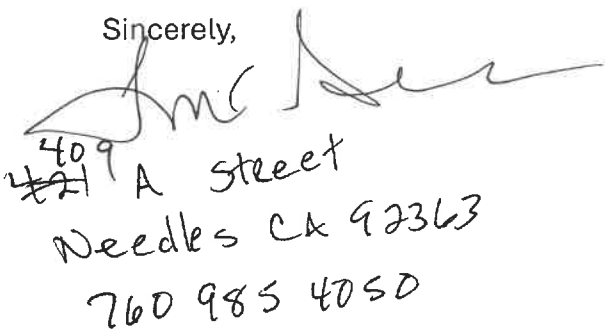 Sincerely,
409
421 A Street
Needles CA 92363
760 985 4050